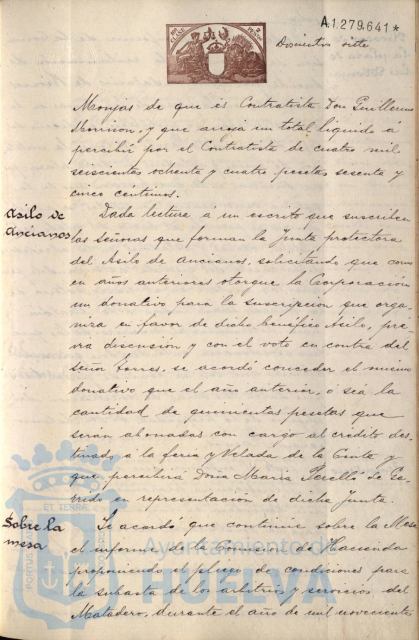 A.1.279.641*
Doscientos siete
Monjas de que es Contratista Don Guillermo
Morrison, y que arroja un total líquido á
percibir por el Contratista de cuatro mil
seiscientas ochenta y cuatro pesetas sesenta y
cinco céntimos.
Asilo de
ancianos
Dada lectura á un escrito que suscriben
las señoras que forman la Junta protectora
del Asilo de ancianos, solicitando que como
en años anteriores otorgue la Corporación
un donativo para la suscripción que orga-
niza en favor de dicho benéfico Asilo, pre-
via discusión y con el voto en contra del
Señor Torres, se acordó conceder el mismo
donativo que el año anterior, ó sea la
cantidad de quinientas pesetas que
serán abonadas con cargo al crédito des-
tinado á la feria y Velada de la Cinta y
que percibirá Doña María de
en representación de dicha Junta.
Sobre la
mesa
Se acordó que continue sobre la Mesa
el informe de la Comisión de Hacienda
proponiendo el pliego de condiciones para
la subasta de los arbitrios y servicios del
Matadero, durante el año de mil novecientos
ET TERRÆ
Ayuntamiento de
HUELVA